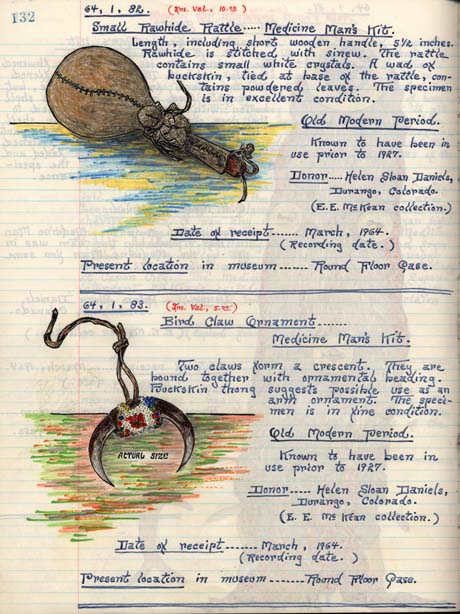 132
64, 1, 82. (Ins. Val., 10.00)
Small Rawhide Rattle..... Medicine Man's Kit.
Length, including short wooden handle, 5½ inches.
Rawhide is stitched with sinew. The rattle
contains small white crystals. A wad of
buckskin, tied at base of the rattle, con-
tains powdered leaves. The specimen
is in excellent condition.
Old Modern Period.
Known to have been in
use prior to 1927.
Donor.... Helen Sloan Daniels,
Durango, Colorado.
(E. E. McKean collection.)
Date of receipt ------- March, 1964.
(Recording date.)
Present location in museum ------ Round Floor Case.
64, 1, 83. (Ins. Val., 5.00)
Bird Claw Ornament.......
Medicine Man's Kit.
Two claws form a crescent. They are
bound together with ornamental beading.
Buckskin thong suggests possible use as an
arm ornament. The speci-
men is in fine condition.
ACTUAL SIZE
Old Modern Period.
Known to have been in
use prior to 1927.
Donor ..... Helen Sloan Daniels,
Durango, Colorado.
(E. E. McKean collection.)
Date of receipt ........ March, 1964.
(Recording date.)
Present location in museum ------ Round Floor Case.